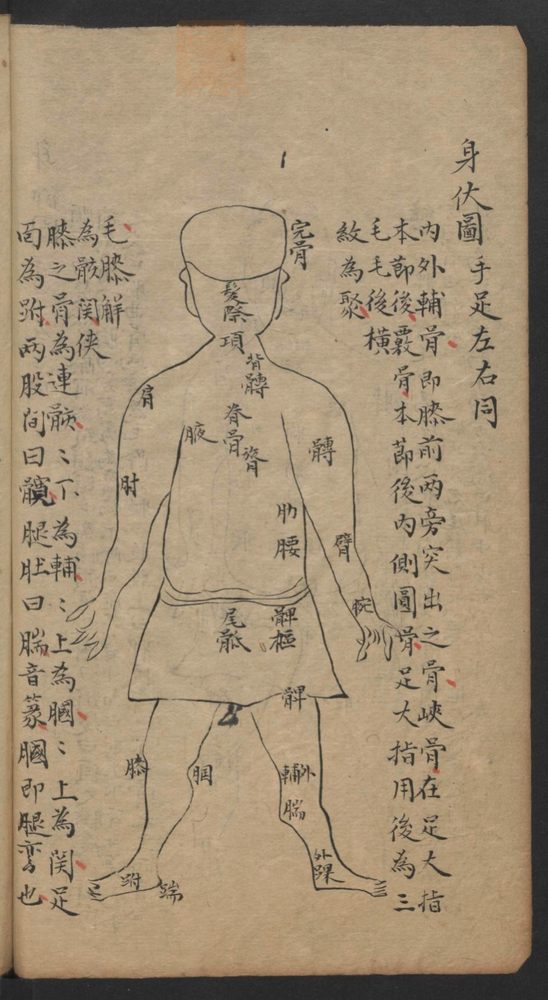 身伏圖 手足左右同
內外輔骨即膝前兩旁突出之骨峽骨在足大指
本節後覈骨本節後內側圓骨足大指用後為三
毛毛後橫
紋為聚
完骨
髮際
項
背
髆
脊骨
膂
腋
肩
髆
肘
肋
腰
臂
腕
尾骶
髀樞
髀
膝
膕
外
輔
腨
外踝
跗
足
端
毛膝解
為骸関俠
膝之骨為連骸〻下為輔〻上為膕〻上為関足
面為跗兩股间曰髖腿肚曰腨音篆膕即腿弯也